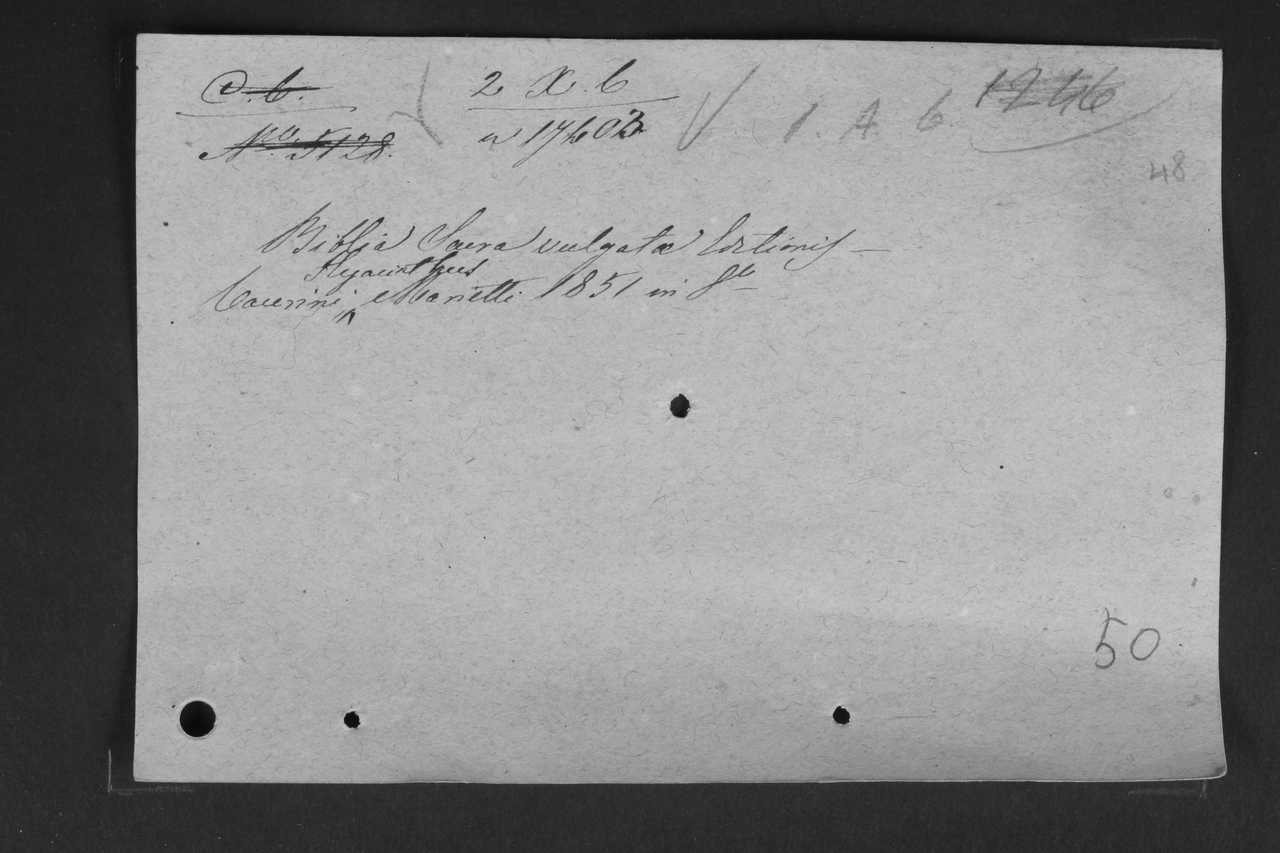 C. b.
2 X. 6
1. A. 6. 1246
No. 5128.
n 17403
48
Biblia Sacra vulgatæ Editionis —
Hyacinthus
Taurini, Marietti 1851 in 8o
50